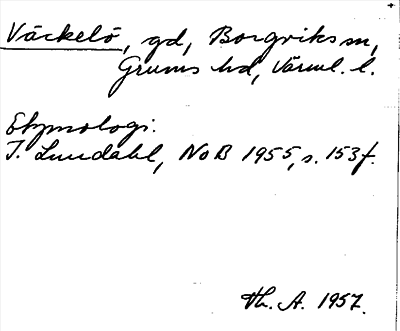 Väckelö, gd, Borgviks sn,
Grums hd, Värml. l.
Etymologi:
I. Lundahl, NoB 1955, s. 153 f.
Th. A. 1957.